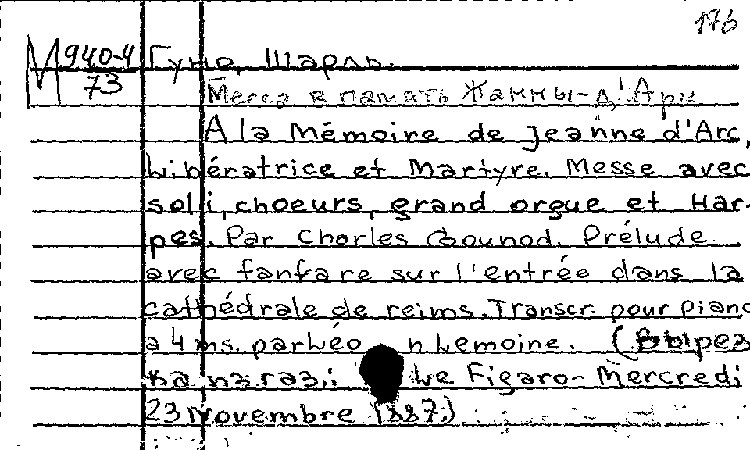 176
М 940-4/73 Гуно, Шарль.
Месса в память Жанны-д'Арк
A la Mémoire de Jeanne d'Arc,
Libératrice et Martyre. Messe avec
soli, choeurs, grand orgue et Har-
pes. Par Charles Gounod. Prélude
avec fanfare sur l'entrée dans la
cathédrale de reims. Transcr. pour piano
a 4 ms. par Léon Lemoine. (Вырез
ка из газ.: Le Figaro-Mercredi
23 Novembre 1887.)